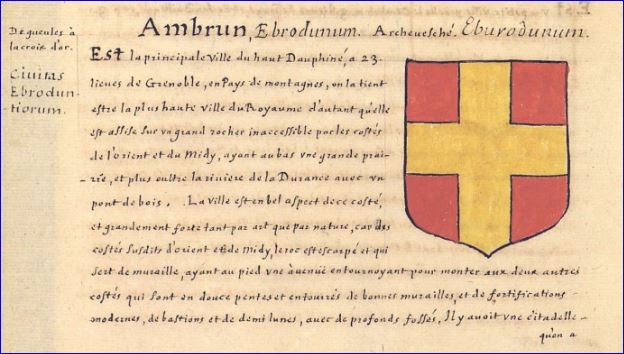 De gueules à
la croix d'or.
Civitas
Ebrodun-
-tiorum.
Ambrun, Ebrodunum. Archevesché. Eburodunum.
Est la principale ville du haut Dauphiné, a 23
lieues de Grenoble, en Pays de montagnes, on la tient
estre la plus haute ville du Royaume d'autant qu'elle
est assise sur un grand rocher inaccessible par les costés
de l'orient et du Midy, ayant au bas vne grande prai-
-rie, et plus oultre la riviere de la Durance avec vn
pont de bois. La ville est en bel aspect de ce costé,
et grandement forte tant par art que par nature, car des
costés susdits d'orient et de Midy, le roc est escarpé et qui
sert de muraille, ayant au pied vne avenüe entournoyant pour monter aux deux autres
costés qui sont en douce pente et entourés de bonnes murailles, et de fortifications
modernes, de bastions et de demi lunes, avec de profonds fossés, Il y avoit vne citadelle
qu'on a